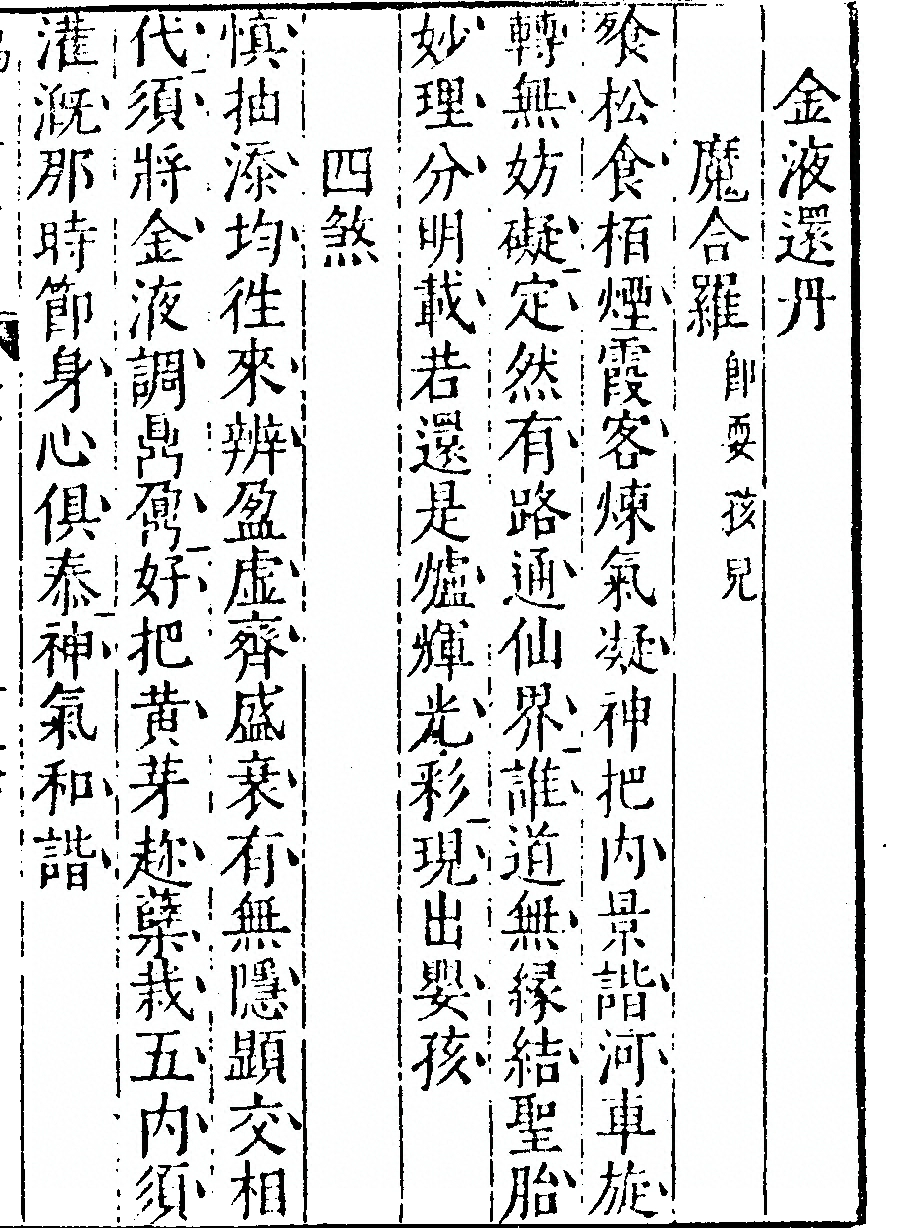 金液還丹
魔合羅即耍孩兒
飱松食栢煙霞客煉氣凝神把内景諧河車旋
轉無妨礙定然有路通仙界誰道無緣結聖胎
妙理分明載若還是爐輝光彩現出嬰孩
四煞
慎抽添均徃來辨盈虛齊盛衰有無隱顕交相
代須將金液調鼎鼐好把黄芽趂蘖栽五内須
灌溉那時節身心俱泰神氣和諧